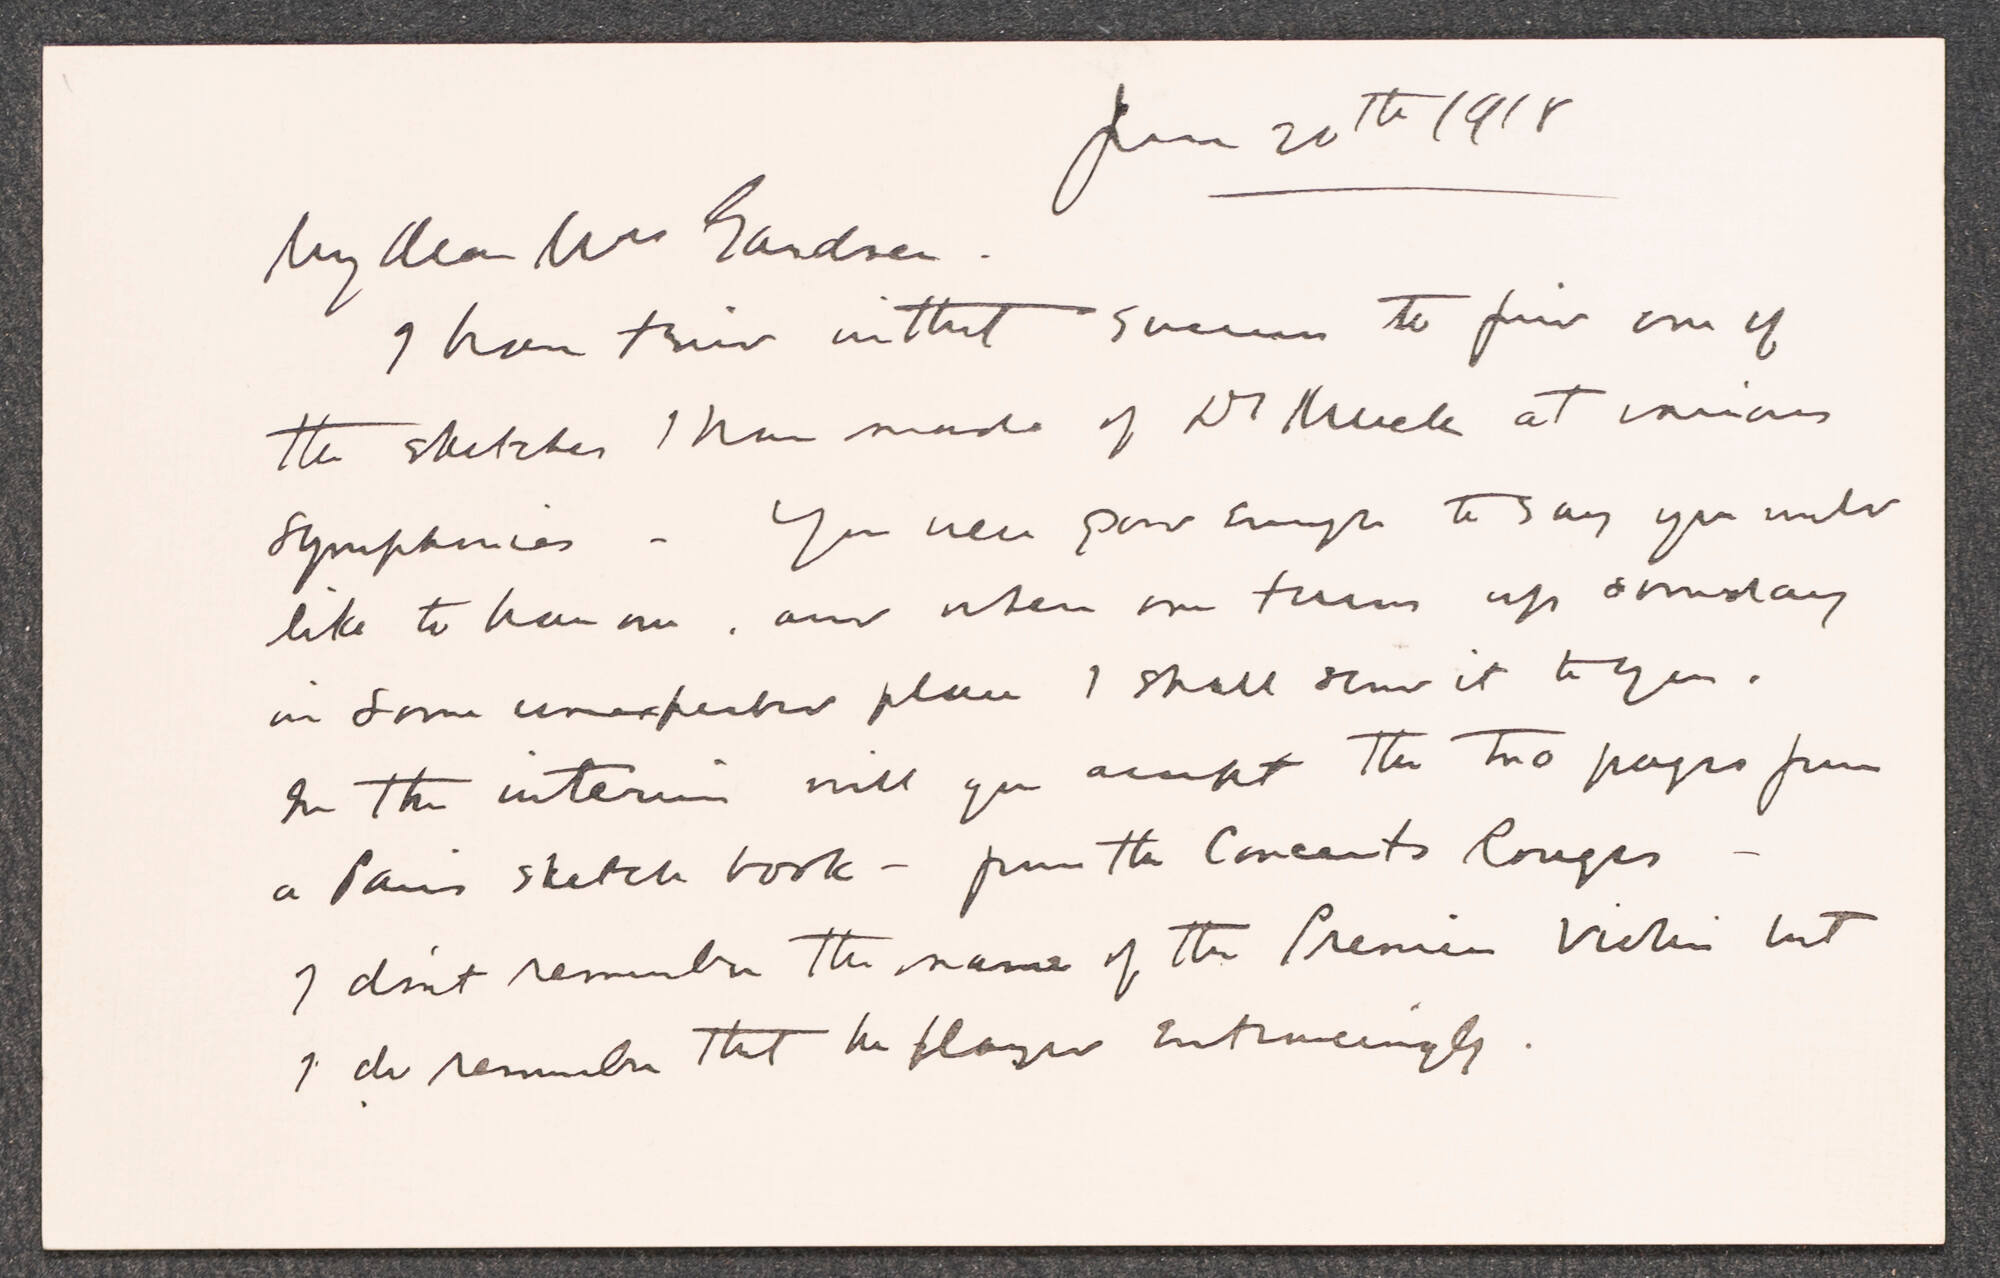 June 20th 1918
My dear Mrs Gardner.
I have tried without success to find one of
the sketches I have made of Dr Muck at various
symphonies - You were good enough to say you would
like to have one, and when one turns up someday
in some unexpected place I shall send it to you.
In the interim will you accept the two pages from
a Paris sketch book - from the Concerts Rouges -
I don't remember the name of the Premier Violin but
I do remember that he played entrancingly.